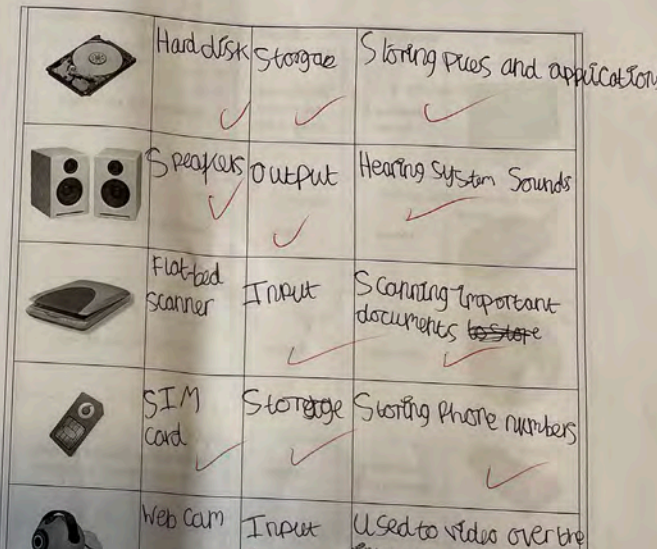 Hard disk
Storgae
Storing files and applications
Speakers
output
Hearing system Sounds
Flat-bed
scanner
Input
Scanning important
documents to store
SIM
card
Storage
Storing Phone numbers
Web cam
Input
Used to video over the